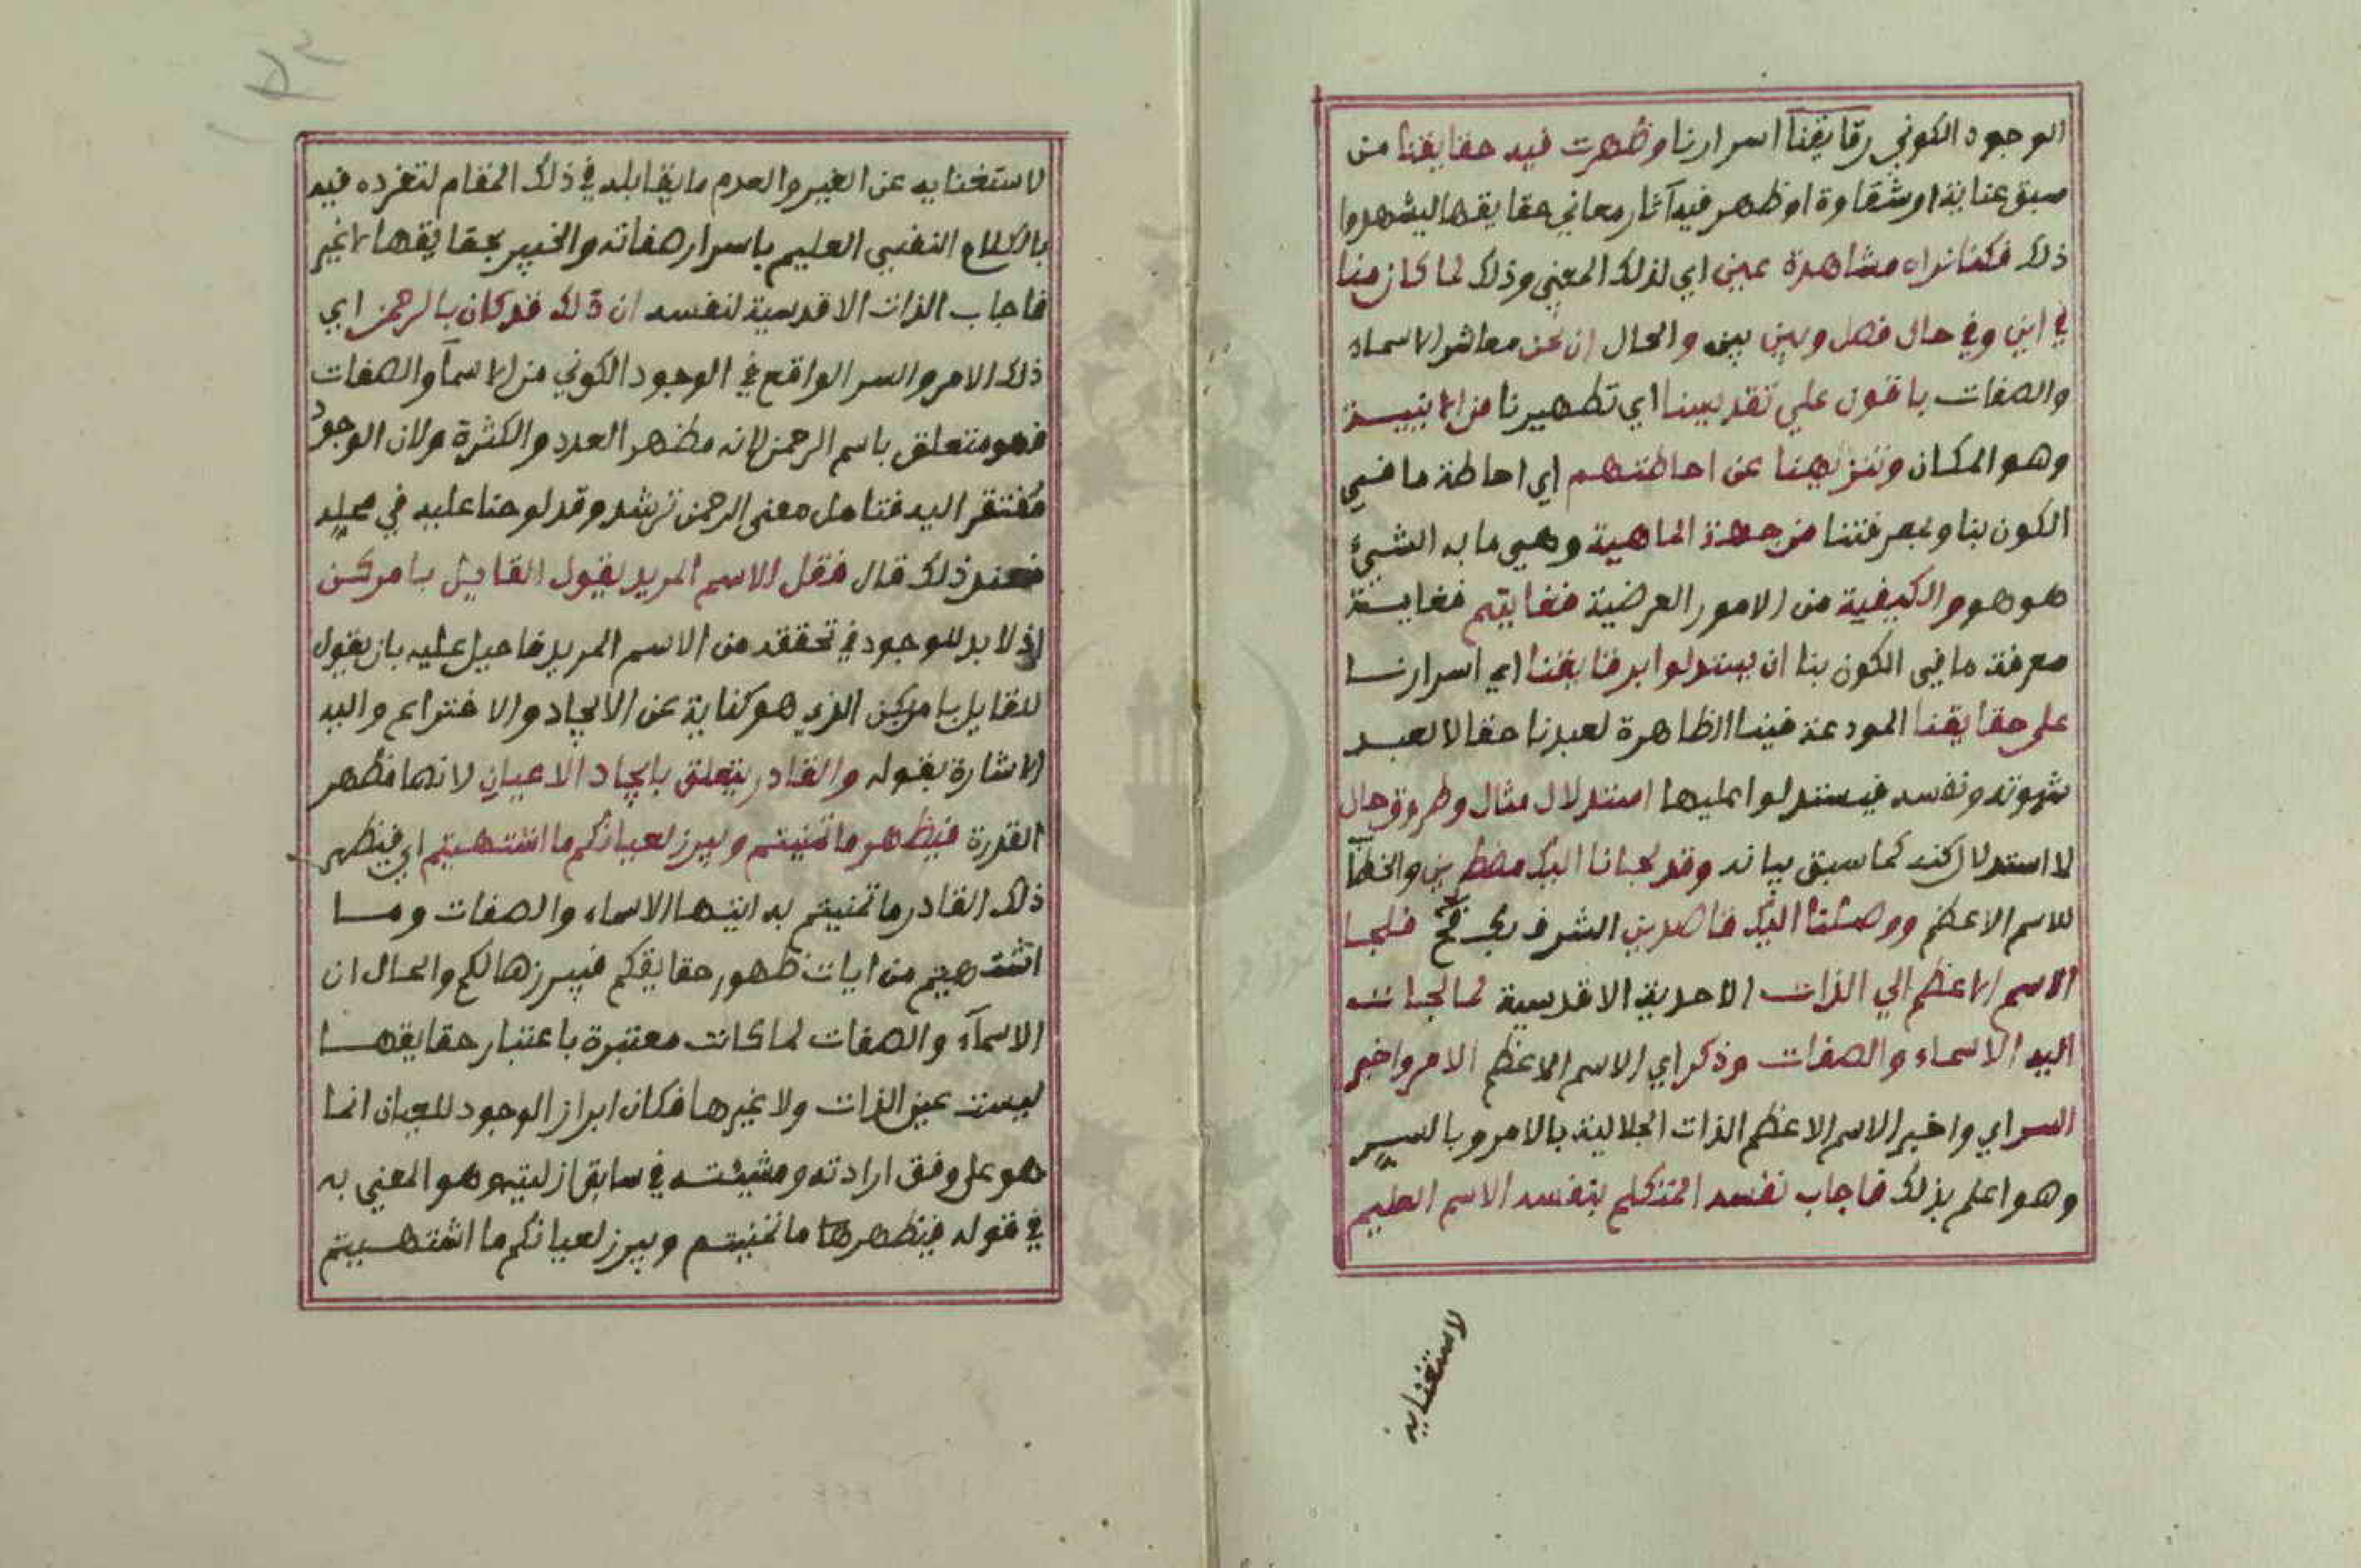 الوجود الكوني رقايقنا اسرارنا وظهرت فيه حقايقنا من
سبق عناية او شقاوة او ظهر فيه آثار معاني حقايقها ليشهدوا
ذلك فكنا نراه مشاهدة عين اي لذلك المعني وذلك لما كان منا
في اين وفي حال فصل وبين بين والحال ان نحن معاشر الاسماء
والصفات باقون علي تقديسنا اي تطهيرنا من الاينيــة
وهو المكان وتنزيهنا عن احاطتهم اي احاطة ما في
الكون بنا وبمعرفتنا من جهة الماهية وهي ما به الشيئ
هو هو والكيفية من الامور العرضية فغايتهم فغايــة
معرفة ما في الكون بنا ان يستدلوا برقايقنا اي اسرارنــا
على حقايقنا المودعة فينا الظاهرة لعبدنا حقا لا لعبــد
شهوته ونفسه فيستدلوا عليها استدلال مثال وطروق حال
لا استدلال كنه كما سبق بيانه وقد لجانا اليك مضطرين والخطاب
للاسم الاعظم ووصلنا اليك قاصدين الشرف بك فلجا
الاسم الاعظم الي الذات الاحدية الاقدسية لما لجات
اليه الاسماء والصفات وذكر اي الاسم الاعظم الامر واخبر
السر اي واخبر الاسم الاعظم الذات الجلالية بالامر وبالسر
وهو اعلم بذلك فاجاب نفسه المتكلم بنفسه الاسم العليم
لاستغنايه
لاستغنايه عن الغير والعدم ما يقابله في ذلك المقام لتفرده فيه
بالكلام النفسي العليم باسرار صفاته والخبير بحقايقها لا غير
فاجاب الذات الاقدسية لنفسه ان ذلك قد كان بالرحمن اي
ذلك الامر والسر الواقع في الوجود الكوني من الاسمآ والصفات
فهو متعلق باسم الرحمن لانه مظهر العدد والكثرة ولان الوجود
مفتقر اليه فتامل معني الرحمن ترشد وقد لوحنا عليه في محله
فعند ذلك قال فقل للاسم المريد يقول القايل بامر كن
اذ لا بد للوجود في تحققه من الاسم المريد فاحيل عليه بان يقول
للقايل بامر كن الذي هو كناية عن الايجاد والاختراع واليه
الاشارة بقوله والقادر يتعلق بايجاد الاعيان لانها مظهر
القدرة فيظهر ما تمنيتم ويبرز لعيانكم ما اشتهيتم اي فيظهر
ذلك القادر ما تمنيتم به ايتها الاسماء والصفات ومــا
اشتهيتم من ايات ظهور حقايقكم فيبرزها لكم والحال ان
الاسمآء والصفات لما كانت معتبرة باعتبار حقايقهــا
ليست عين الذات ولا غيرها فكان ابراز الوجود للعيان انما
هو على وفق ارادته ومشيئته في سابق ازليته وهو المعني به
في قوله فيظهرها ما تمنيتم ويبرز لعيانكم ما اشتهيتم